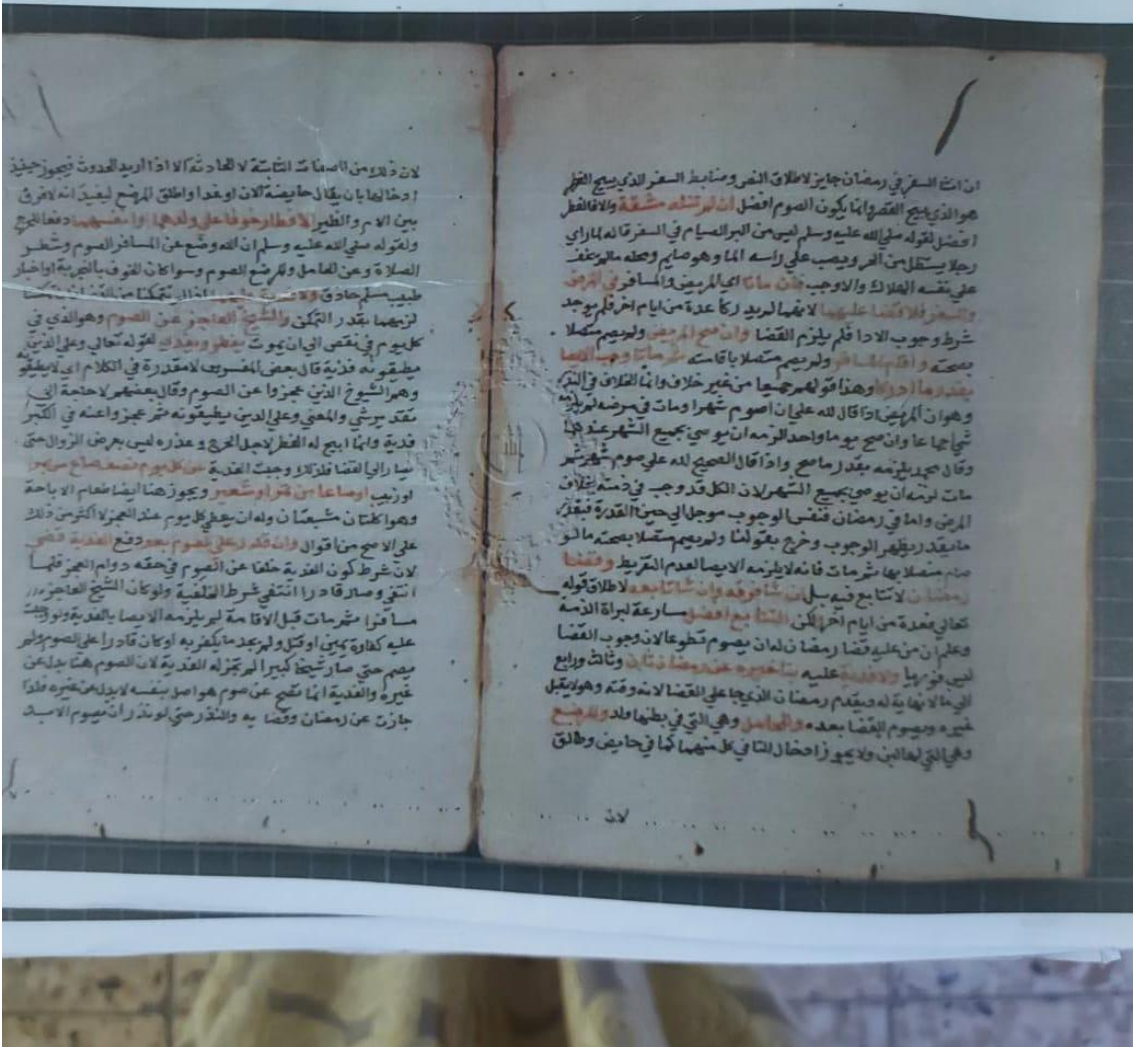 ان انشا السفر في رمضان جايز لاطلاق النص وضابط السفر الذي يبيح الفطر
هو الذي يبيح القصر وانما يكون الصوم افضل ان لم تنله مشقة والا فالفطر
افضل لقوله صلي الله عليه وسلم ليس من البر الصيام في السفر قاله لما راي
رجلا يستظل من الحر ويصب علي راسه الما وهو صايم ومحله ما لم يخف
علي نفسه الهلاك والا وجب فان ماتا اي المريض والمسافر في المرض
والسفر فلا قضا عليهما لانهما لم يدركا عدة من ايام اخر فلم يوجد
شرط وجوب الادا فلم يلزم القضا وان صح المريض ولم يصم متصلا
بصحته واقام المسافر ولم يصم متصلا باقامته ثم ماتا وجب الايصا
بقدر ما ادركا وهذا قولهم جميعا من غير خلاف وانما الخلاف في النذر
وهو ان المريض اذا قال لله علي ان اصوم شهرا ومات في مرضه لم يلزمه
شي اجماعا وان صح يوما واحدا لزمه ان يوصي بجميع الشهر عندهما
وقال محمد يلزمه بقدر ما صح واذا قال الصحيح لله علي صوم شهر ثم
مات لزمه ان يوصي بجميع الشهر لان الكل قد وجب في ذمته بخلاف
المرض واما في رمضان فنفس الوجوب موجل الي حين القدرة فبقدر
ما يقدر يظهر الوجوب وخرج بقولنا ولم يصم متصلا بصحته ما لو
صام متصلا بها ثم مات فانه لا يلزمه الايصا لعدم التفريط وقضا
رمضان لا تتابع فيه بل ان شا فرقه وان شا تابعه لاطلاق قوله
تعالي فعدة من ايام اخر لكن التتابع افضل مسارعة لبراة الذمة
وعلم ان من عليه قضا رمضان له ان يصوم تطوعا لان وجوب القضا
ليس فوريا ولا فدية عليه بتاخيره عن رمضان ثان وثالث ورابع
الي ما لا نهاية له ويقدم رمضان الذي جا علي القضا لانه وقته وهو لا يقبل
غيره ويصوم القضا بعده والحامل وهي التي في بطنها ولد والمرضع
وهي التي لها لبن ولا يجوز ادخال التا في كل منهما كما في حايض وطالق
لان
لان ذلك من الصفات الثابتة لا الحادثة الا اذا اريد الحدوث فيجوز حينئذ
ادخالها بان يقال حايضة الان او غدا واطلق المرضع ليفيد انه لا فرق
بين الام والظير الافطار خوفا علي ولدهما او انفسهما دفعا للحرج
ولقوله صلي الله عليه وسلم ان الله وضع عن المسافر الصوم وشطر
الصلاة وعن الحامل والمرضع الصوم وسوا كان الخوف بالتجربة او اخبار
طبيب مسلم حاذق ولا فدية عليهما
لزمهما بقدر التمكن والشيخ العاجز عن الصوم وهو الذي في
كل يوم في نقص الي ان يموت يفطر ويفدي لقوله تعالي وعلي الذين
يطيقونه فدية قال بعض المفسرين لا مقدرة في الكلام اي لا يطيقونه
وهم الشيوخ الذين عجزوا عن الصوم وقال بعضهم لا حاجة الي
مقدر سوي شي والمعني وعلي الذين يطيقونه ثم عجزوا عنه في الكبر
فدية وانما ابيح له الفطر لاجل الحرج وعذره ليس بعرض الزوال حتي
يصار الي القضا فلذلك وجبت الفدية عن كل يوم نصف صاع من بر
او زبيب او صاعا من تمر او شعير ويجوز هنا ايضا طعام الاباحة
وهو اكلتان مشبعتان وله ان يعطي كل يوم عند العجز لا اكثر من ذلك
علي الاصح من اقوال وان قدر علي الصوم بعد دفع الفدية قضي
لان شرط كون الفدية خلفا عن الصوم في حقه دوام العجز فلما
انتفي وصار قادرا انتفي شرط الخلفية ولو كان الشيخ العاجز
مسافرا ثم مات قبل الاقامة لم يلزمه الايصا بالفدية ولو وجبت
عليه كفارة يمين او قتل ولم يجد ما يكفر به او كان قادرا علي الصوم ولم
يصم حتي صار شيخا كبيرا لم تجزله الفدية لان الصوم هنا بدل عن
غيره والفدية انما تصح عن صوم هو اصل بنفسه لا بدل عن غيره فلذا
جازت عن رمضان وقضا به والنذر حتي لو نذر ان يصوم الابد